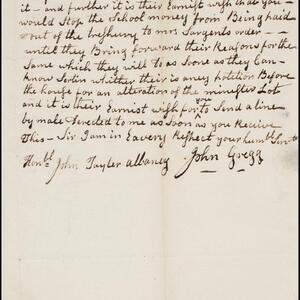 it - and further it is their Earnist wish that you -
would Stop the School money from Being paid
out of the treshury to mrs Sargents order - -
until they Bring forward their Reasons for the
Same which they will to as Soone as they Can -
know Sertin whether their is aney petition Before
the house for an alteration of the minester Lot
and it is their Earnist wish for you to Send a line
by male Derected to me as Soon as you Receive
this - Sir I am in Eavery Respect your humbl Servt
Honbl John Tayler albaney John Gregg